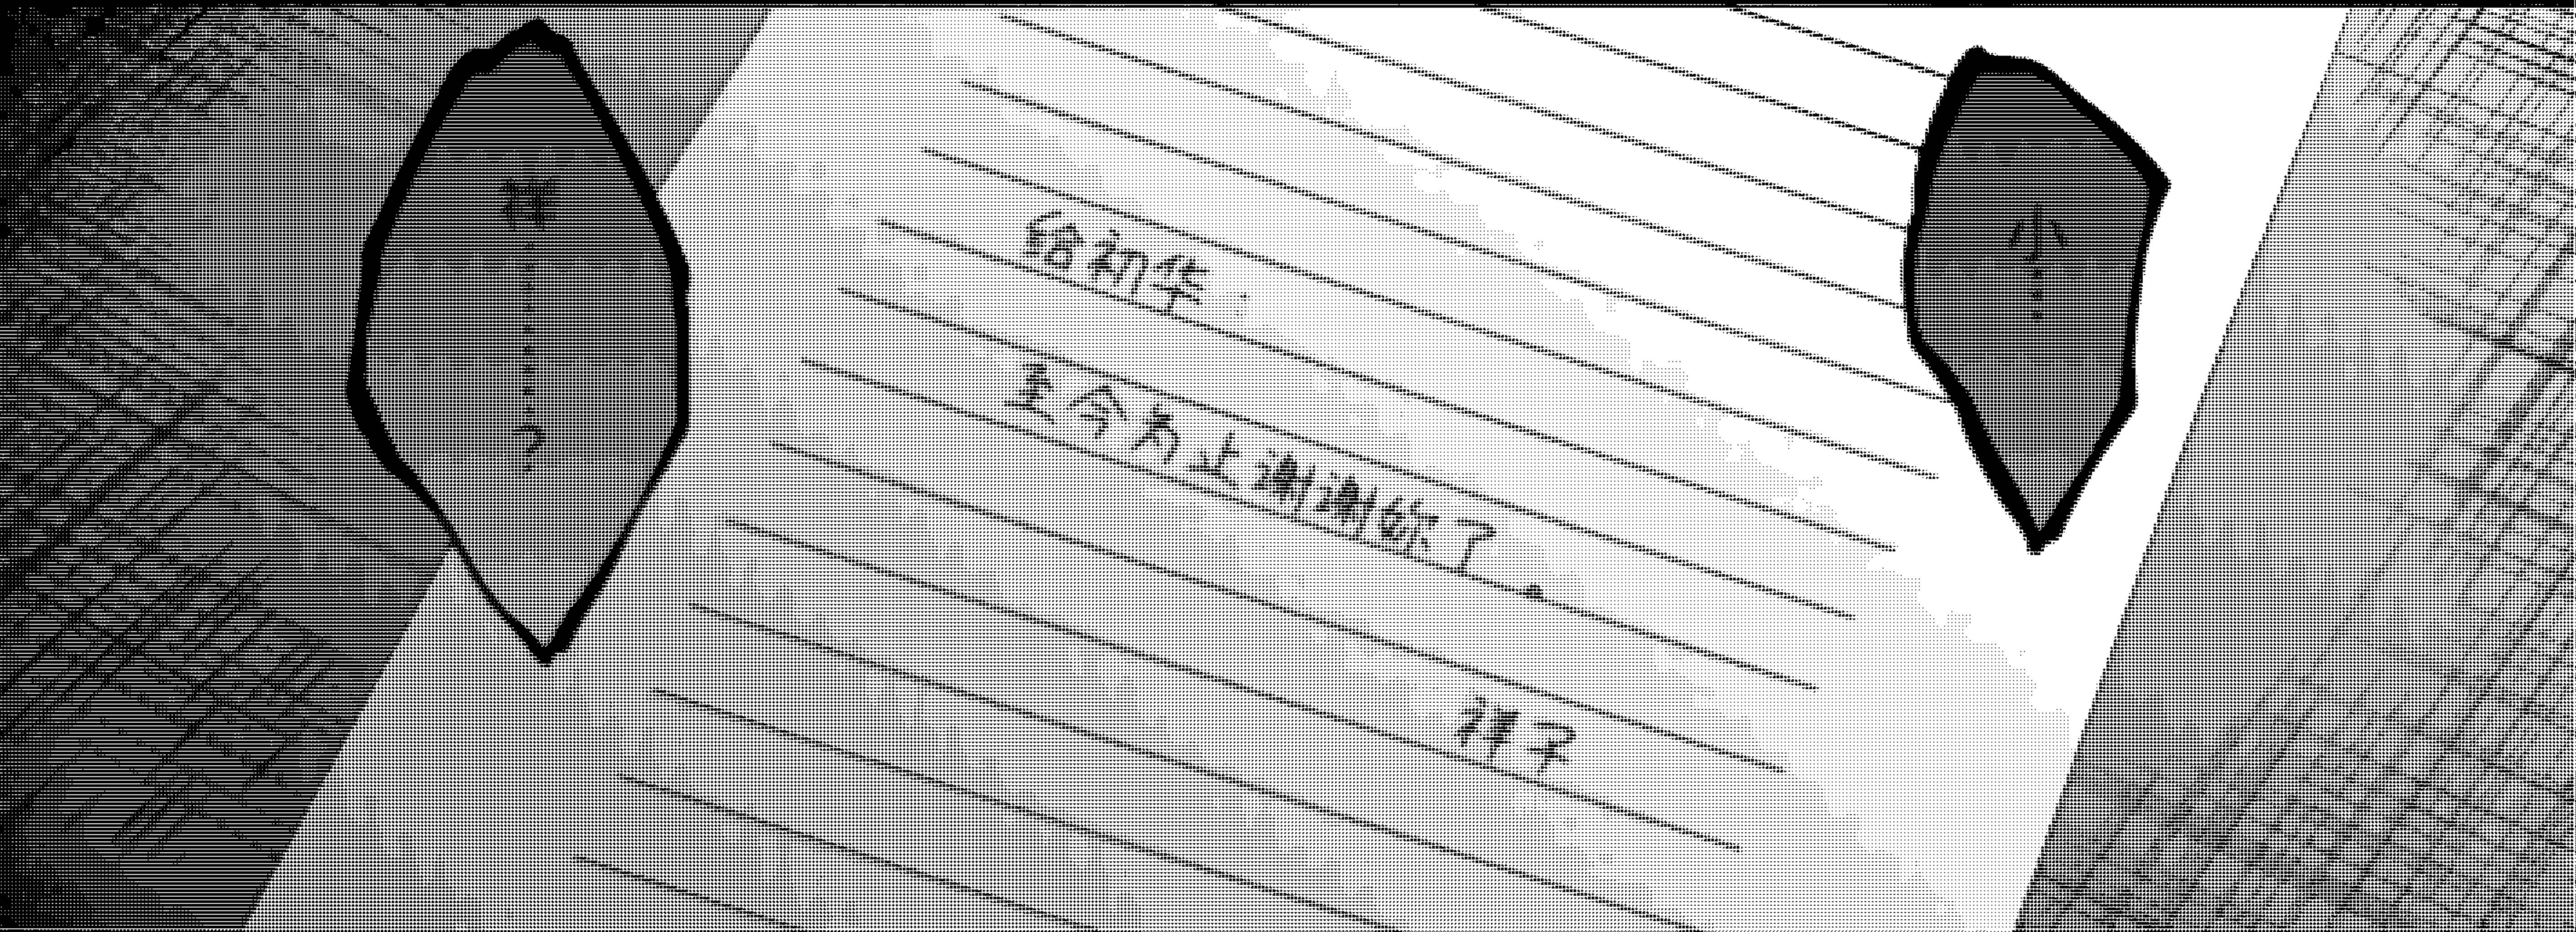 小……
给初华：
至今为止谢谢妳了。
祥子
祥…………？